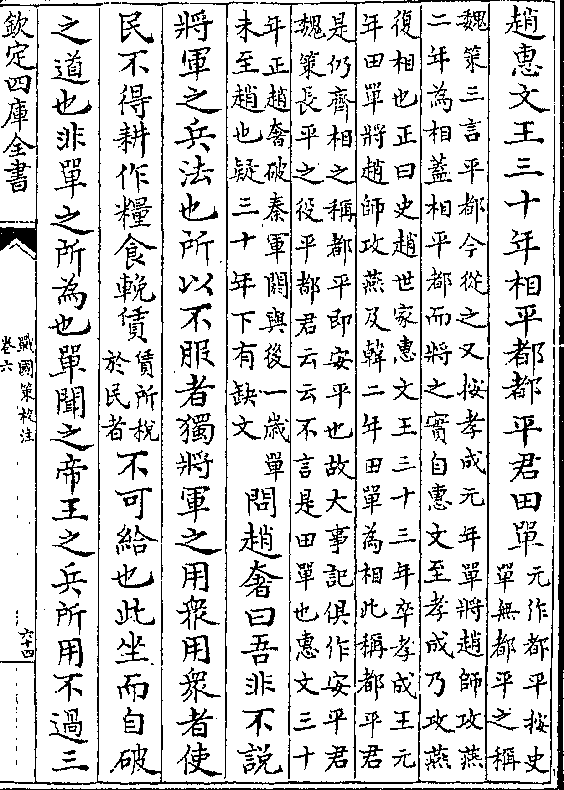 趙惠文王三十年相平都都平君田單元作都平按史
單無都平之稱
魏策三言平都今從之又按孝成元年單將趙師攻燕
二年為相蓋相平都而將之實自惠文至孝成乃攻燕
復相也正曰史趙世家惠文王三十三年卒孝成王元
年田單將趙師攻燕及韓二年田單為相此稱都平君
是仍齊相之稱都平即安平也故大事記俱作安平君
魏策長平之役平都君云云不言是田單也惠文三十
年正趙奢破秦軍閼與後一歲單
未至趙也疑三十年下有缺文
問趙奢曰吾非不說
將軍之兵法也所以不服者獨將軍之用衆用衆者使
民不得耕作糧食輓賃賃所稅
於民者不可給也此坐而自破
之道也非單之所為也單聞之帝王之兵所用不過三
欽定四庫全書
戰國策校注
卷六
六十四